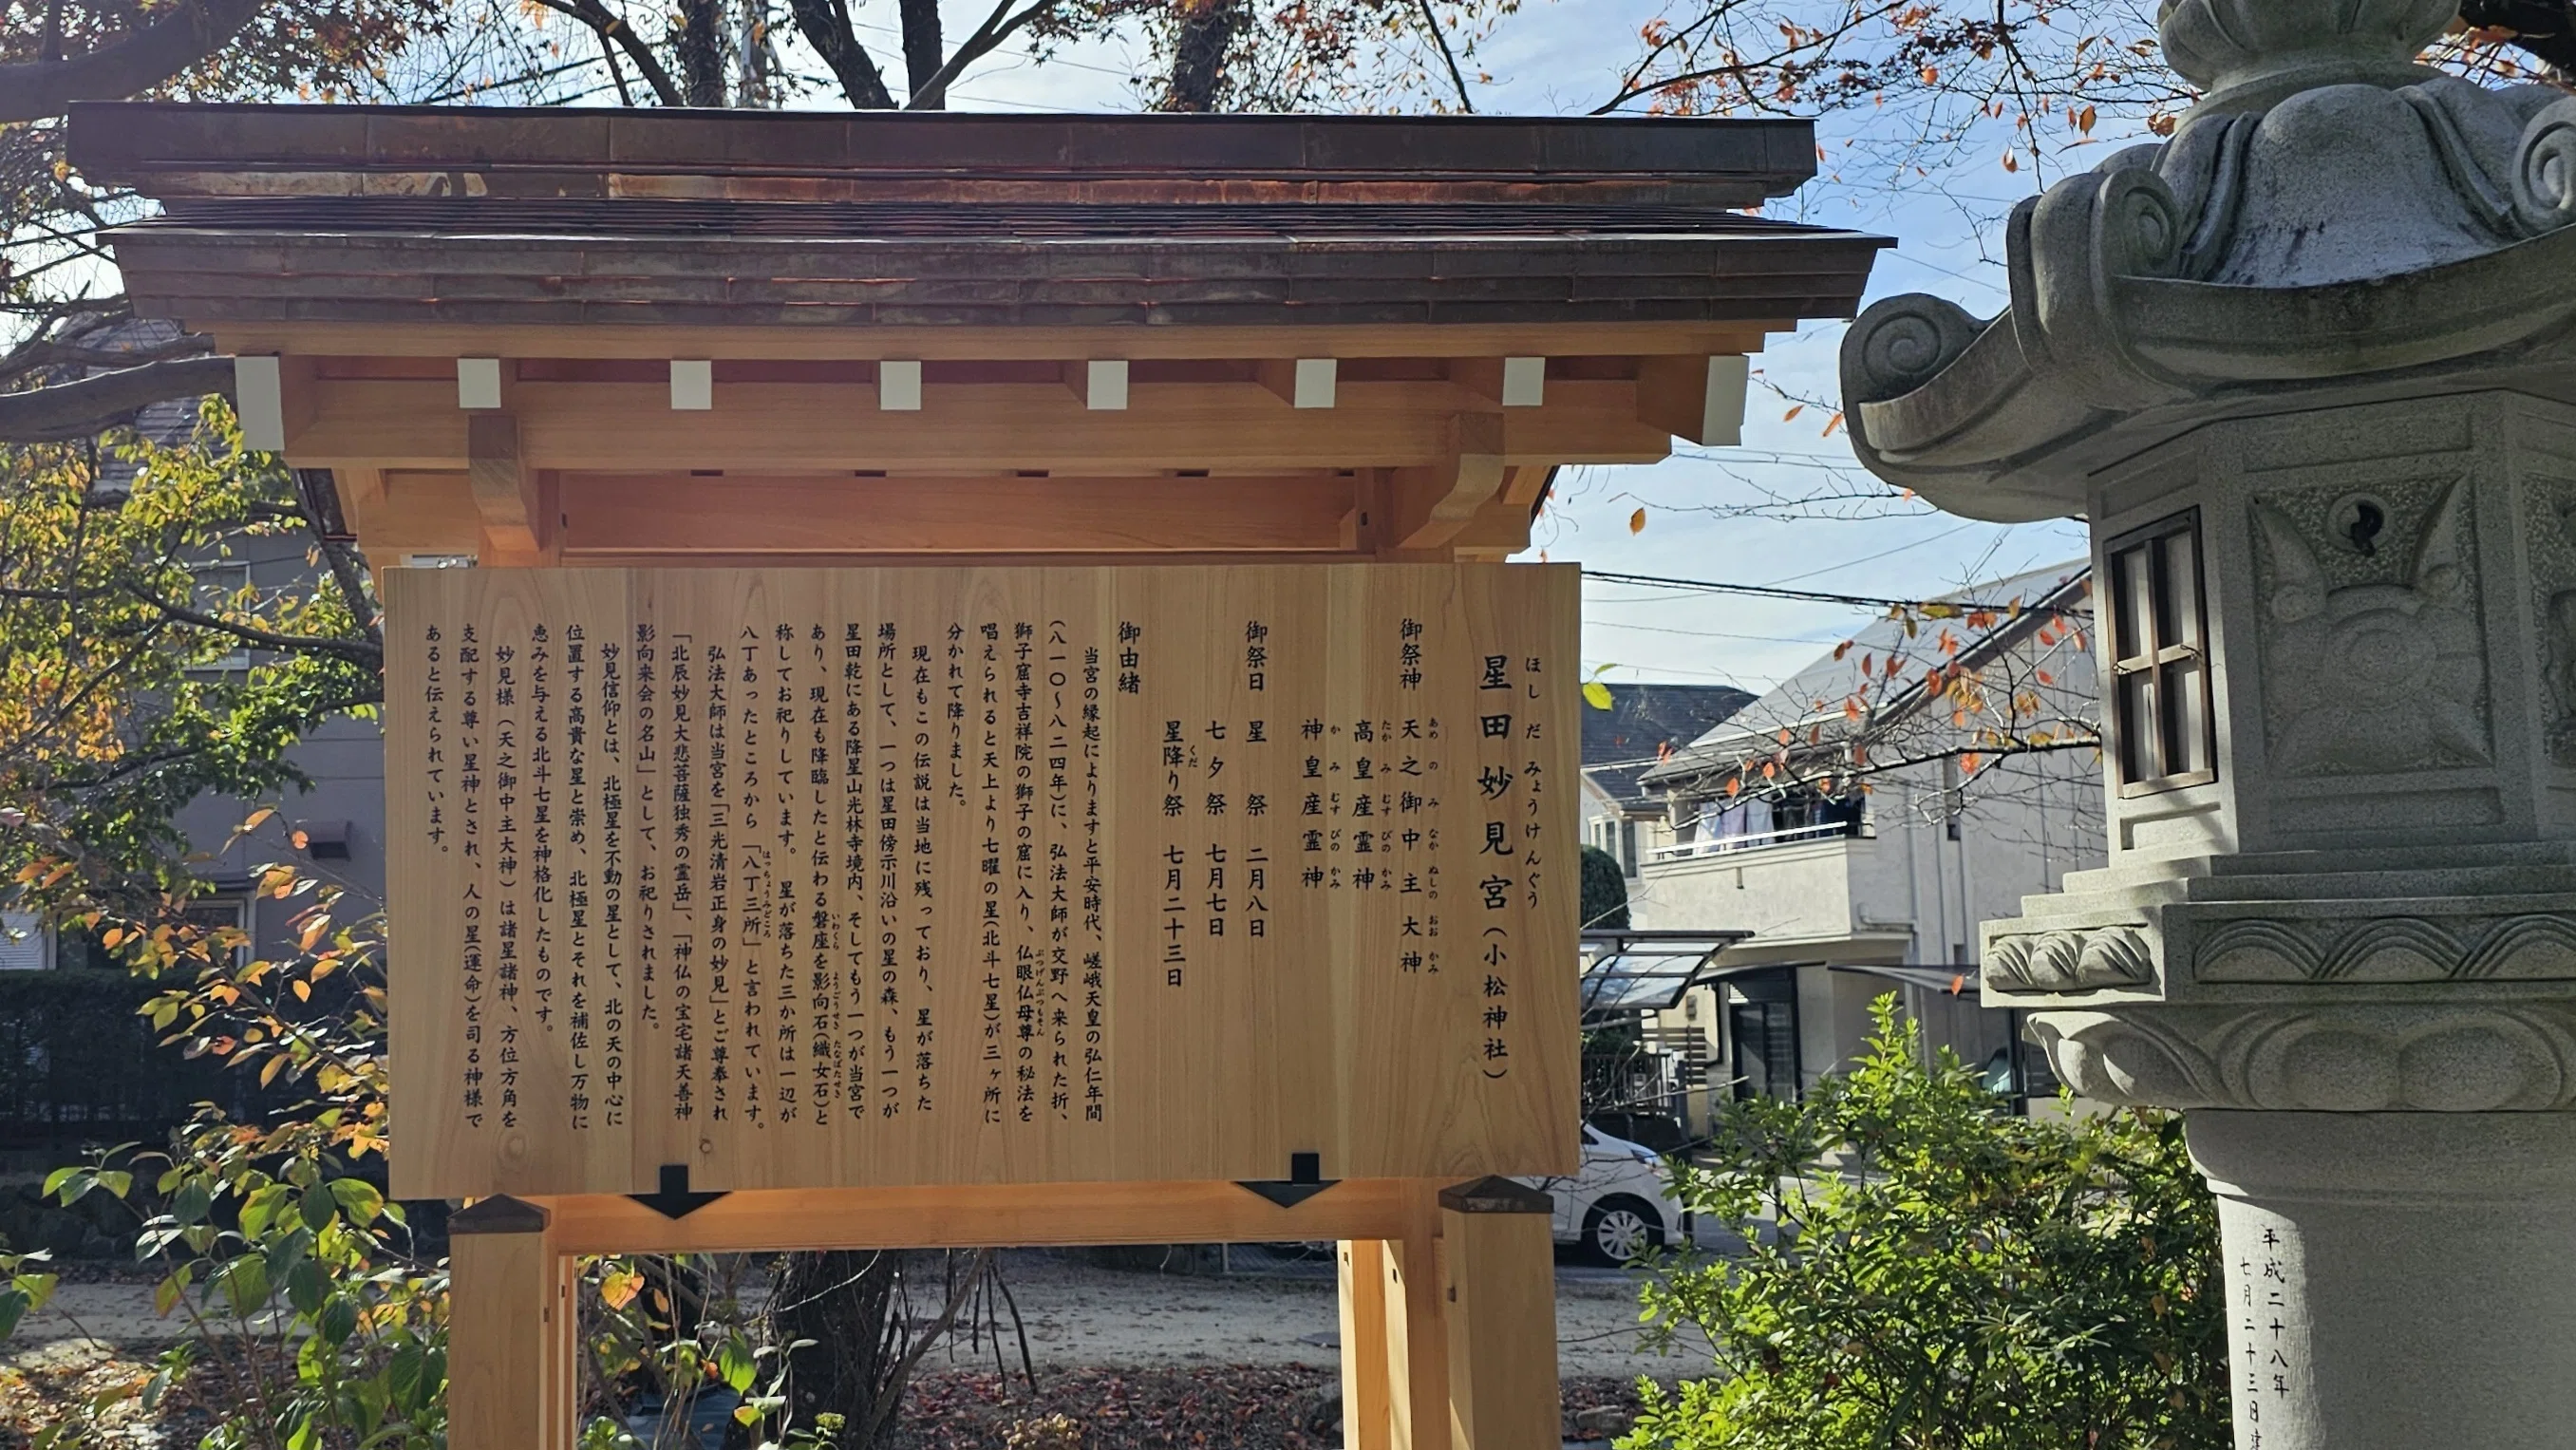 ほしだみょうけんぐう
星田妙見宮（小松神社）
あめのみなかぬしのおおかみ
御祭神 天之御中主大神
たかみむすびのかみ
高皇産霊神
かみむすびのかみ
神皇産霊神
御祭日 星祭 二月八日
七夕祭 七月七日
くだ
星降り祭 七月二十三日
御由緒
当宮の縁起によりますと平安時代、嵯峨天皇の弘仁年間
（八一〇〜八二四年）に、弘法大師が交野へ来られた折、
ぶつげんぶつもそん
獅子窟寺吉祥院の獅子の窟に入り、仏眼仏母尊の秘法を
唱えられると天上より七曜の星（北斗七星）が三ヶ所に
分かれて降りました。
現在もこの伝説は当地に残っており、星が落ちた
場所として、一つは星田傍示川沿いの星の森、もう一つが
星田乾にある降星山光林寺境内、そしてもう一つが当宮で
いわくら ようごうせき たなばたせき
あり、現在も降臨したと伝わる磐座を影向石（織女石）と
称してお祀りしています。星が落ちた三か所は一辺が
はっちょうみどころ
八丁あったところから「八丁三所」と言われています。
弘法大師は当宮を「三光清岩正身の妙見」とご尊奉され
「北辰妙見大悲菩薩独秀の霊岳」、「神仏の宝宅諸天善神
影向来会の名山」として、お祀りされました。
妙見信仰とは、北極星を不動の星として、北の天の中心に
位置する高貴な星と崇め、北極星とそれを補佐し万物に
恵みを与える北斗七星を神格化したものです。
妙見様（天之御中主大神）は諸星諸神、方位方角を
支配する尊い星神とされ、人の星（運命）を司る神様で
あると伝えられています。
平成二十八年
七月二十三日